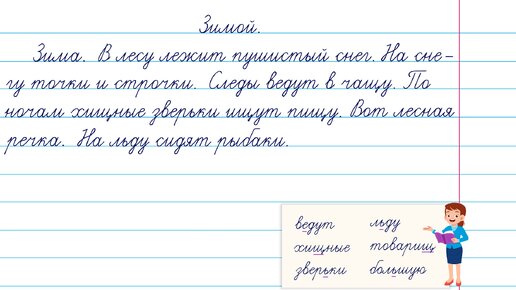 Зимой.
Зима. В лесу лежит пушистый снег. На сне-
гу точки и строчки. Следы ведут в чащу. По
ночам хищные зверьки ищут пищу. Вот лесная
речка. На льду сидят рыбаки.
ведут льду
хищные товарищ
зверьки большую